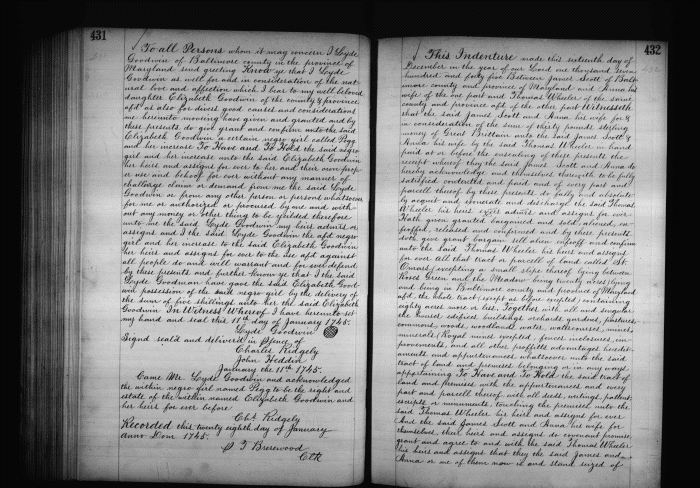 431
To all Persons whom it may concern I Lyde
Goodwin of Baltimore county in the province of
Maryland send greeting Know ye that I Lyde
Goodwin as well for and in consideration of the nat
ural love and affection which I bear to my well beloved
daughter Elizabeth Goodwin of the county & province
afd as also for divers good causes and considerations
me hereunto moving have given and granted and by
these presents do give grant and confirm unto the said
Elizabeth Goodwin a certain negro girl called Pegg
and her increase To Have and To Hold the said negro
girl and her increase unto the said Elizabeth Goodwin
her heirs and assigns for ever to her and their own prop
er use and behoof for ever without any manner of
challenge claim or demand from me the said Lyde
Goodwin or from any other person or persons whatsoever
for me or authorized or procured by me and with-
out any money or other thing to be yeilded therefore
unto me the said Lyde Goodwin my heirs admrs or
assigns and I the said Lyde Goodwin the afd negro
girl and her increase to the said Elizabeth Goodwin
her heirs and assigns for ever to the use afd against
all people do and will warrant and for ever defend
by these presents and further know ye that I the said
Lyde Goodwin have gave the said Elizabeth Good-
win possession of the said negro girl by the delivery of
the sum of five shillings unto her the said Elizabeth
Goodwin In Witness Whereof I have hereunto set
my hand and seal this 11th day of January 1745.
Lyde Goodwin
Signd seald and deliverd in psence of
Charles Ridgely
John Heddin
January the 11th 1745.
Came Mr. Lyde Goodwin and acknowledged
the within negro girl named Pegg to be the right and
estate of the within named Elizabeth Goodwin and
her heirs for ever before
Chs. Ridgely
Recorded this twenty eighth day of January
Anno Dom 1745.
Brerewood
Clk
432
This Indenture made this sixteenth day of
December in the year of our Lord one thousand seven
hundred and forty five Between James Scott of Balt
imore county and province of Maryland and Anna his
wife of the one part and Thomas Wheeler of the same
county and province afd of the other part Witnesseth
that the said James Scott and Anna his wife for &
in consideration of the sume of thirty pounds sterling
money of Great Brittain unto the said James Scott &
Anna his wife by the said Thomas Wheeler in hand
paid at or before the ensealing of these presents the
receipt whereof they the said James Scott and Anna do
hereby acknowledge and themselves therewith to be fully
satisfied contented and paid and of every part and
parcell thereof by these presents do fully and absolute
ly acquit and exonerate and discharge the said Thomas
Wheeler his heirs exers admrs and assigns for ever
Hath given granted bargained and sold aliened en
feoffed, released and confirmed and by these presents
doth give grant bargain sell alien infeoff and confirm
unto the said Thomas Wheeler his heirs and assigns
for ever all that tract or parcell of land called St.
Omars (excepting a small slipe thereof lying between
Roses Green and the Meadow being twenty acres) lying
and being in Baltimore county and province of Maryland
afd, the whole tract except as before excepted) containing
eighty acres more or less Together with all and singular
the houses edifices buildings orchards gardens, pastures
commons, woods, woodlands, waters, watercourses, mines,
minerals (Royal mines excepted) fences inclosures, im-
provements, and all other proffitts advantages heredit-
aments and appurtenances whatsoever unto the said
tract of land and premises belonging or in any ways
appertaining To Have and To Hold the said tract of
land and premises with the appurtenances and every
part and parcell thereof with all deeds, writings, pattents
escripts or minuments, touching the premises unto the
said Thomas Wheeler his heirs and assigns for ever
And the said James Scott and Anna his wife for
themselves their heirs and assigns do covenant promise
grant and agree to and with the said Thomas Wheeler
his heirs and assigns that they the said James and
Anna or one of them now is and stand seized of